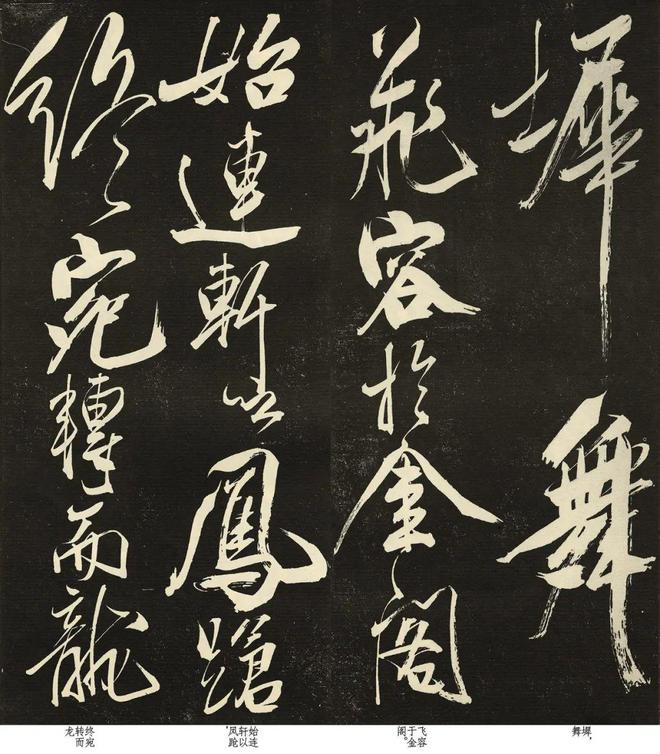 墀舞
飛容於金閣
始連軒以鳳蹌
終宛轉而龍
墀,
舞
飞容
于金
阁。
始连
轩以
凤跄,
终宛
转而
龙